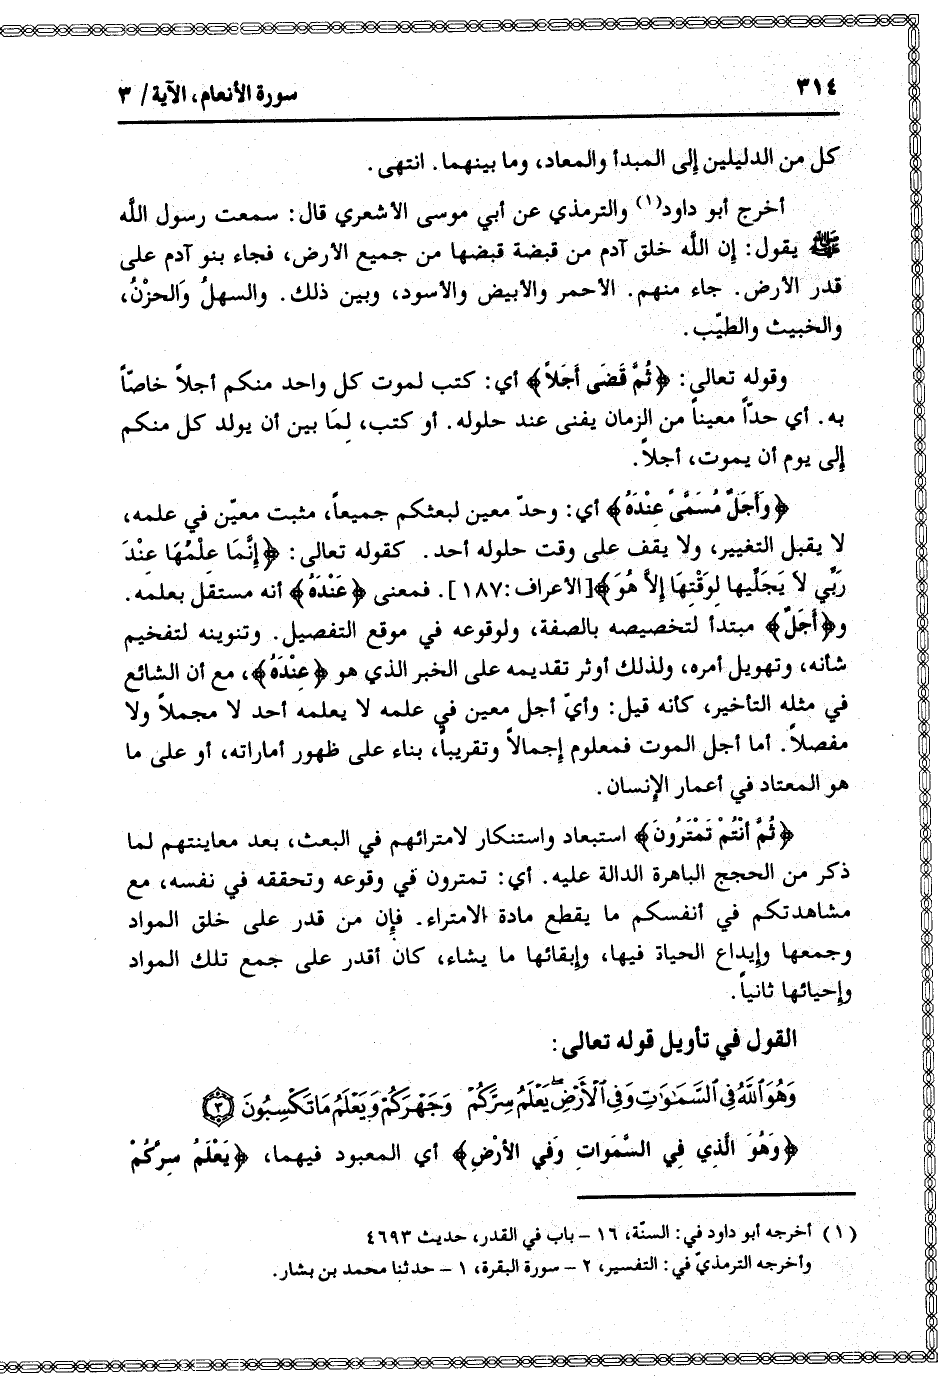 ٣١٤ سورة الأنعام، الآية / ٣
كل من الدليلين إلى المبدأ والمعاد، وما بينهما. انتهى.
أخرج أبو داود(١) والترمذي عن أبي موسى الأشعري قال: سمعت رسول اللَّه
ﷺ يقول: إن اللَّه خلق آدم من قبضة قبضها من جميع الأرض، فجاء بنو آدم على
قدر الأرض. جاء منهم. الأحمر والأبيض والأسود، وبين ذلك. والسهلُ وَالحزْنُ،
والخبيث والطيّب.
وقوله تعالى: ﴿ثُمَّ قَضَى أَجَلاً﴾ أي: كتب لموت كل واحد منكم أجلاً خاصّاً
به. أي حدّاً معيناً من الزمان يفنى عند حلوله. أو كتب، لِمَا بين أن يولد كل منكم
إلى يوم أن يموت، أجلاً.
﴿وَأَجَلٌ مُسَمًّى عِنْدَهُ﴾ أي: وحدّ معين لبعثكم جميعاً، مثبت معيّن في علمه،
لا يقبل التغيير، ولا يقف على وقت حلوله أحد. كقوله تعالى: ﴿إِنَّمَا عِلْمُهَا عِنْدَ
رَبِّي لاَ يَجَلِّيها لِوَقْتِهَا إِلاَّ هُوَ﴾[الأعراف:١٨٧]. فمعنى ﴿عَنْدَهُ﴾ أنه مستقل بعلمه.
و﴿أَجَلٌ﴾ مبتدأ لتخصيصه بالصفة، ولوقوعه في موقع التفصيل. وتنوينه لتفخيم
شأنه، وتهويل أمره، ولذلك أوثر تقديمه على الخبر الذي هو ﴿عِنْدَهُ﴾، مع أن الشائع
في مثله التأخير، كأنه قيل: وأيّ أجل معين في علمه لا يعلمه أحد لا مجملاً ولا
مفصلاً. أما أجل الموت فمعلوم إجمالاً وتقريباً، بناء على ظهور أماراته، أو على ما
هو المعتاد في أعمار الإنسان.
﴿ثُمَّ أَنْتُمْ تَمْتَرُونَ﴾ استبعاد واستنكار لامترائهم في البعث، بعد معاينتهم لما
ذكر من الحجج الباهرة الدالة عليه. أي: تمترون في وقوعه وتحققه في نفسه، مع
مشاهدتكم في أنفسكم ما يقطع مادة الامتراء. فإن من قدر على خلق المواد
وجمعها وإيداع الحياة فيها، وإبقائها ما يشاء، كان أقدر على جمع تلك المواد
وإحيائها ثانياً.
القول في تأويل قوله تعالى:
وَهُوَ ٱللَّهُ فِي ٱلسَّمَٰوَٰتِ وَفِي ٱلۡأَرۡضِۖ يَعۡلَمُ سِرَّكُمۡ وَجَهۡرَكُمۡ وَيَعۡلَمُ مَا تَكۡسِبُونَ ٣
﴿وَهُوَ الَّذِي فِي السَّمَواتِ وَفي الأَرْضِ﴾ أي المعبود فيهما، ﴿يَعْلَمُ سِرَّكُمْ
(١) أخرجه أبو داود في: السنّة، ١٦ - باب في القدر، حديث ٤٦٩٣
وأخرجه الترمذيّ في: التفسير، ٢ - سورة البقرة، ١ - حدثنا محمد بن بشار.